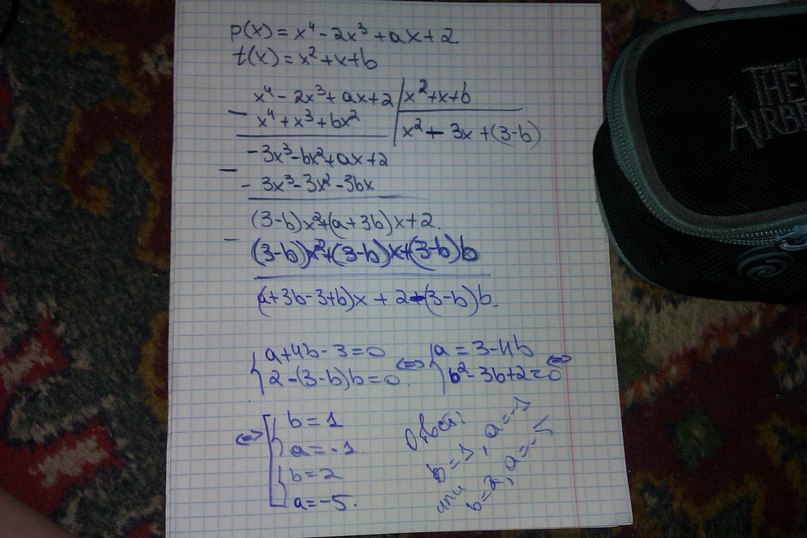 p(x) = x⁴ - 2x³ + ax + 2
t(x) = x² + x + b
x⁴ - 2x³ + ax + 2 | x² + x + b
- x⁴ + x³ + bx² | x² - 3x + (3-b)
- 3x³ - bx² + ax + 2
- - 3x³ - 3x² - 3bx
(3-b)x² + (a+3b)x + 2.
- (3-b)x² + (3-b)x + (3-b)b
(a+3b-3+b)x + 2 - (3-b)b.
{ a + 4b - 3 = 0 <=> { a = 3 - 4b <=>
2 - (3-b)b = 0. b² - 3b + 2 = 0
<=> [ { b = 1
a = -1.
{ b = 2
a = -5.
Ответ:
b = 1, a = -1
или
b = 2, a = -5
THE
AIRB